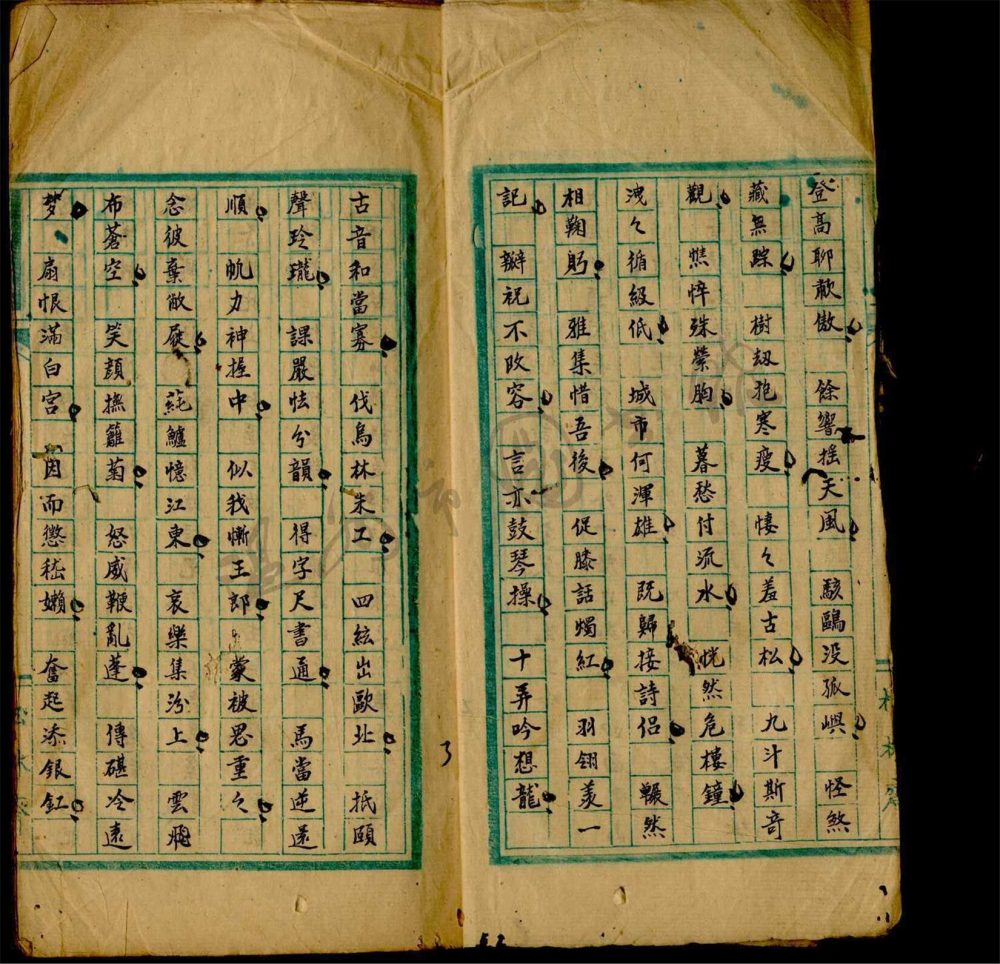 登高聊歗傲 餘響揺天風 駭鷗没孤嶼 怪煞
藏無踪 樹刼抱寒瘦 悽々羞古松 九斗斯竒
觀 憔悴殊縈胸 暮愁付流水 恍然危樓鐘
洩々循級低 城市何渾雄 既歸接詩侣 囅然
相鞠躬 雅集惜吾後 促膝話燭紅 羽翎羨一
記 瓣祝不改容 言亦鼓琴操 十弄吟想龍
古音和當寡 伐烏林朱工 四絃出歐北 抵頤
聲玲瓏 課嚴怯分韻 得字尺書通 馬當逆送
順 帆力神握中 似我慚王郎 蒙被恩重々
念彼棄敝屣 蒓鱸憶江東 哀樂集汾上 雲飛
布蒼空 笑顔撫籬菊 怒威鞭亂蓬 傳碪冷遠
梦 扇恨滿白宮 因而懲嵇嬾 奮起添銀釭
3